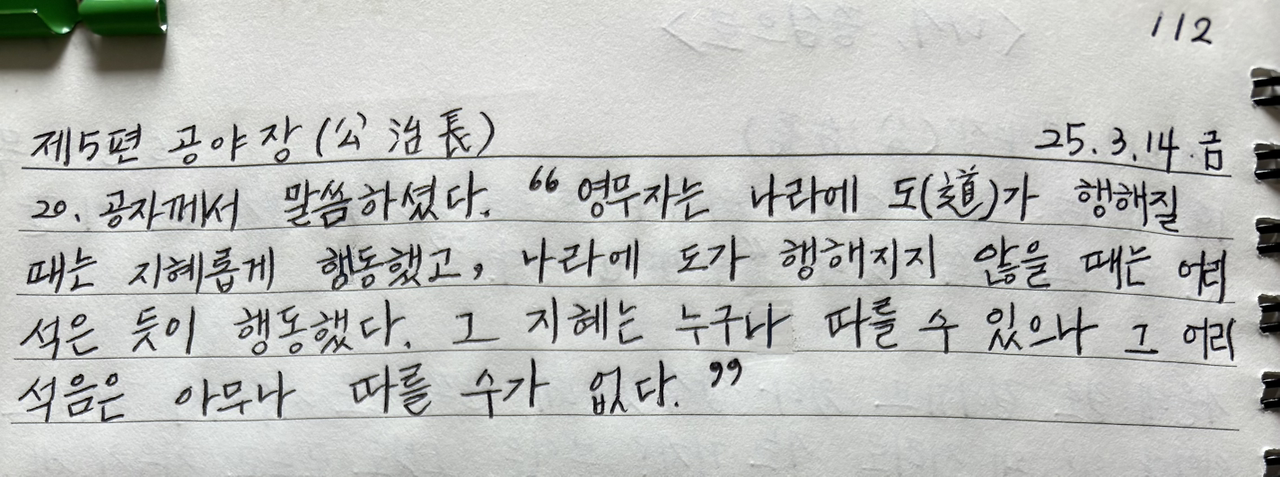 112
제5편 공야장(公冶長) 25.3.14.금
20. 공자께서 말씀하셨다. "영무자는 나라에 도(道)가 행해질
때는 지혜롭게 행동했고, 나라에 도가 행해지지 않을 때는 어리
석은 듯이 행동했다. 그 지혜는 누구나 따를 수 있으나 그 어리
석음은 아무나 따를 수가 없다."